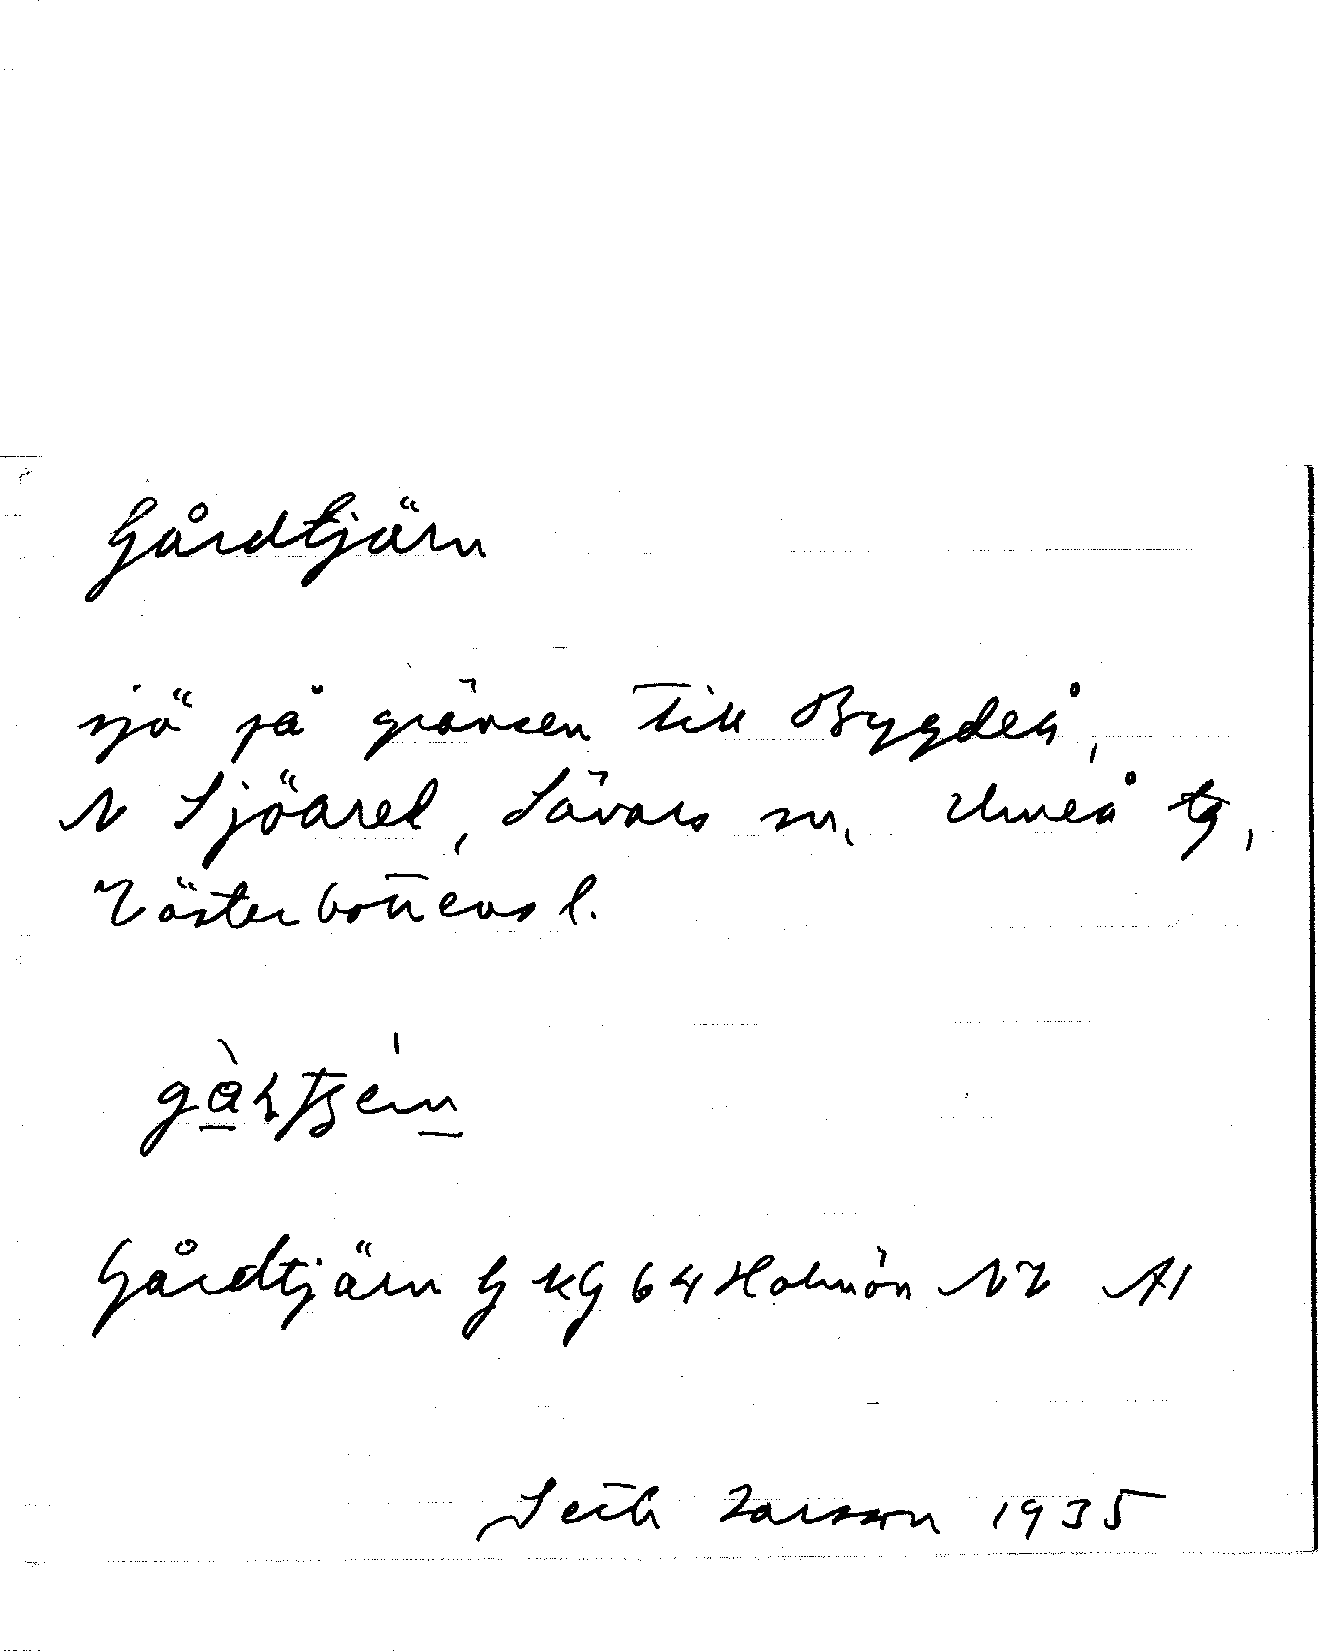 Gårdtjärn
sjö på gränsen till Bygdeå,
N Sjöarel, Sävars sn, Umeå tg,
Västerbottens l.
Gårdtjärn G KG 64 Holmön NV A1
Seth Larsson 1935